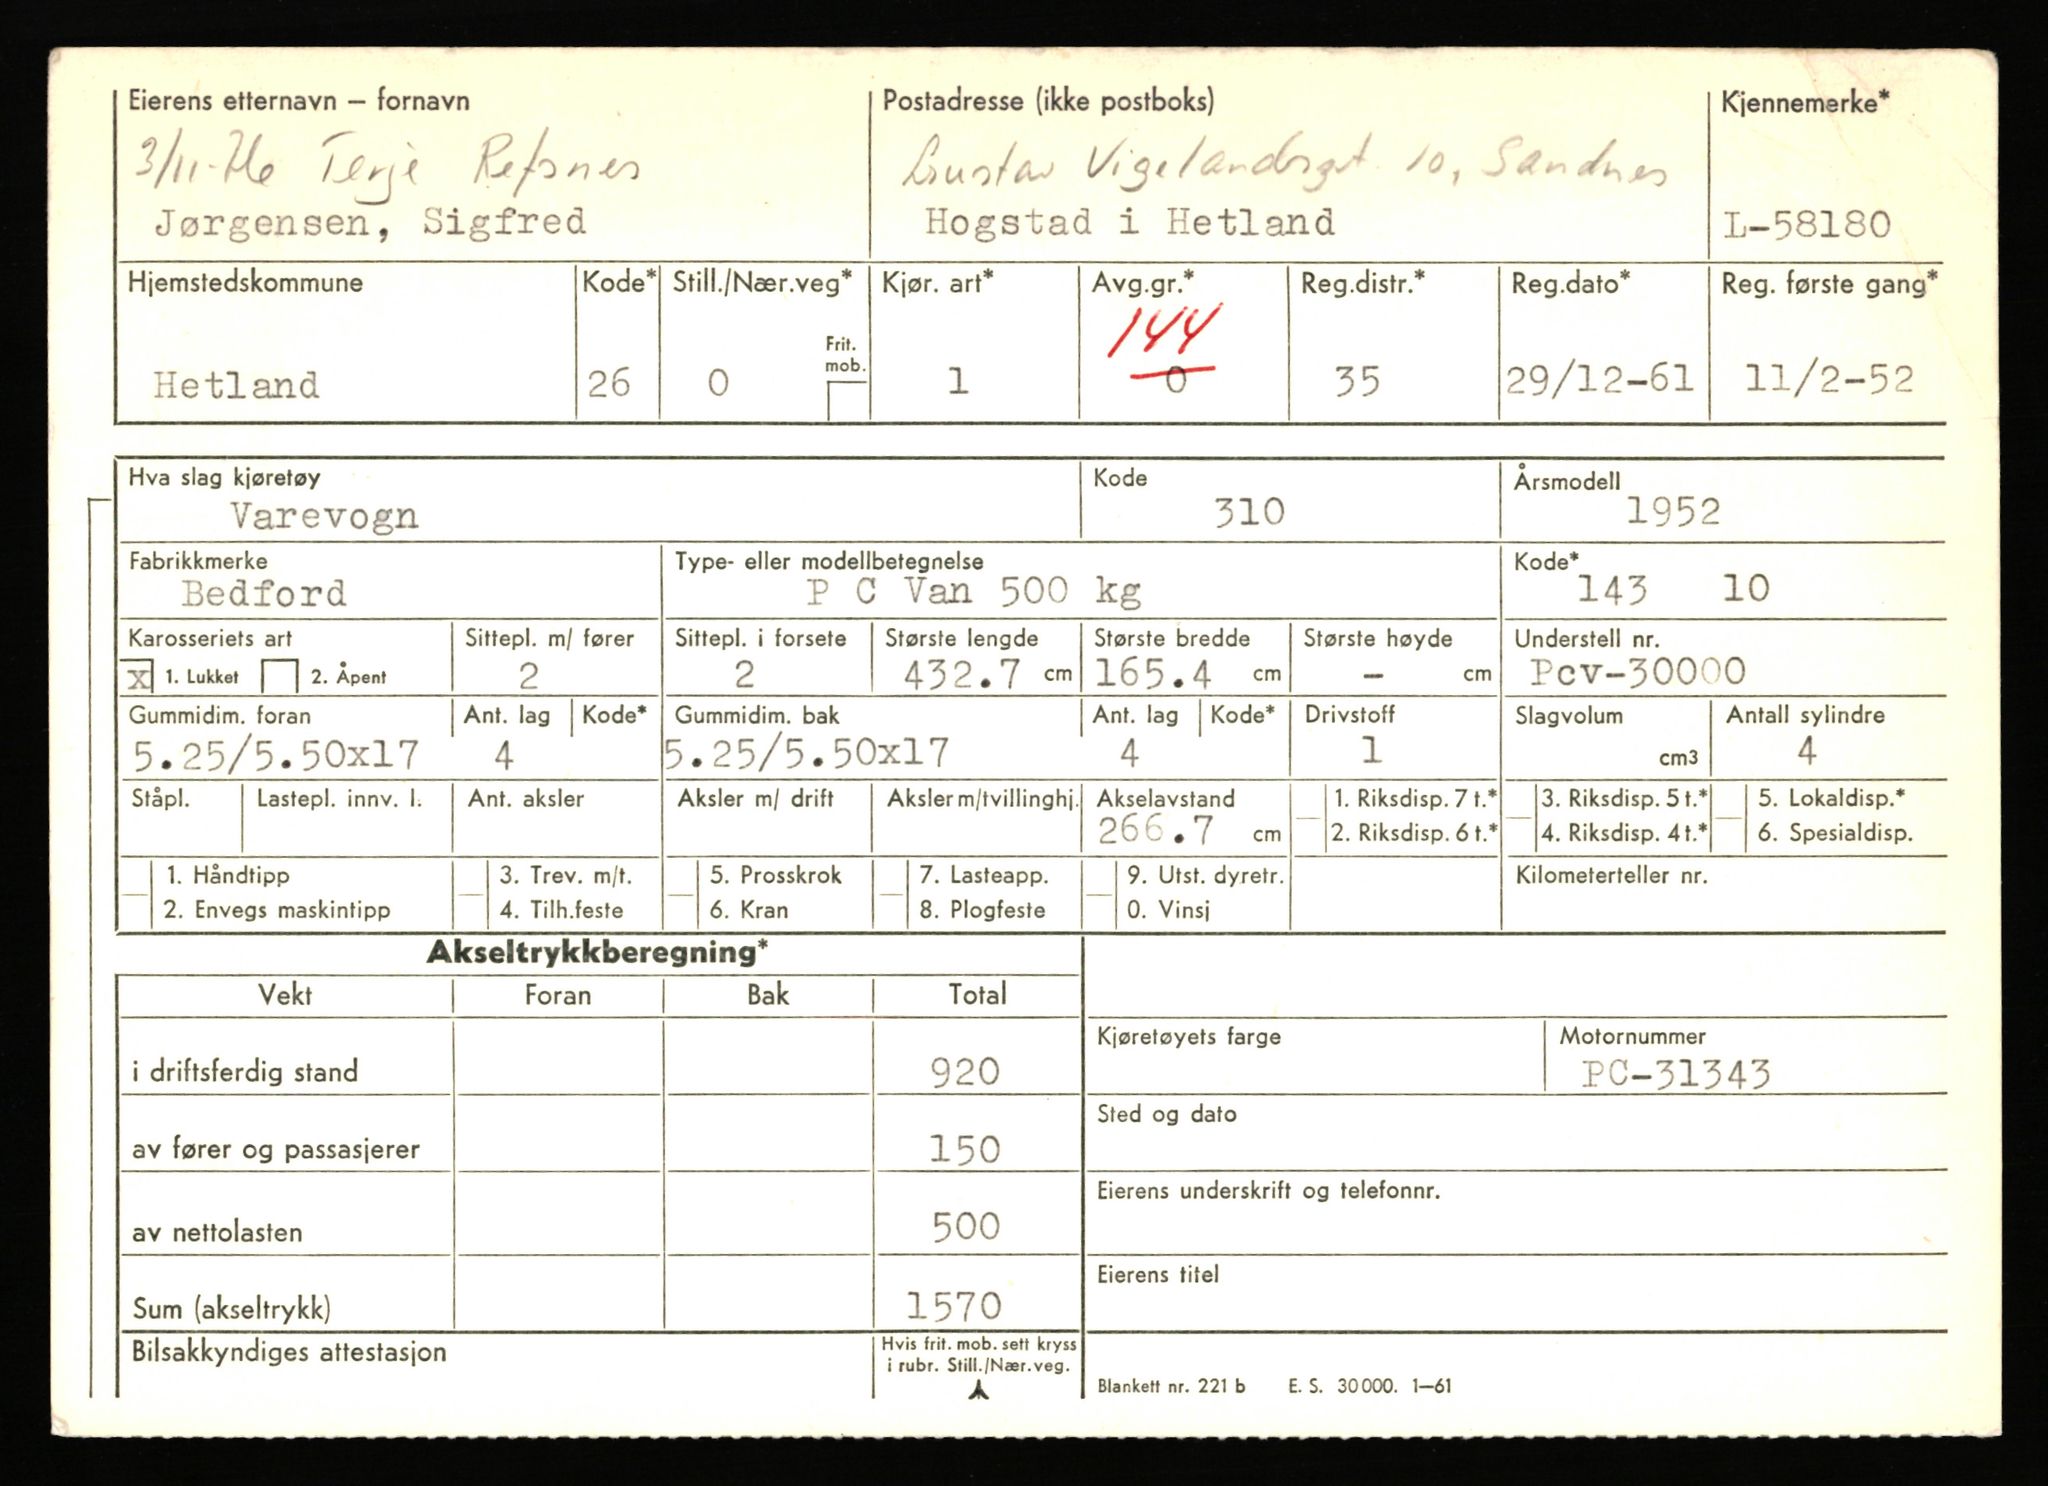 Eierens etternavn – fornavn Postadresse (ikke postboks) Kjennemerke*
3/11-76 Terje Refsnes Gustav Vigelandsgt. 10, Sandnes
Jørgensen, Sigfred Hogstad i Hetland L-58180
Hjemstedskommune Kode* Still./Nær.veg* Kjør. art* Avg.gr.* Reg.distr.* Reg.dato* Reg. første gang*
144
Frit. mob.
Hetland 26 0 1 0 35 29/12-61 11/2-52
Hva slag kjøretøy Kode Årsmodell
Varevogn 310 1952
Fabrikkmerke Type- eller modellbetegnelse Kode*
Bedford P C Van 500 kg 143 10
Karosseriets art Sittepl. m/ fører Sittepl. i forsete Største lengde Største bredde Største høyde Understell nr.
x 1. Lukket 2. Åpent 2 2 432.7 cm 165.4 cm – cm Pcv-30000
Gummidim. foran Ant. lag Kode* Gummidim. bak Ant. lag Kode* Drivstoff Slagvolum Antall sylindre
5.25/5.50x17 4 5.25/5.50x17 4 1 cm3 4
Ståpl. Lastepl. innv. l. Ant. aksler Aksler m/ drift Aksler m/tvillinghj. Akselavstand 1. Riksdisp. 7 t.* 3. Riksdisp. 5 t.* 5. Lokaldisp.*
266.7 cm 2. Riksdisp. 6 t.* 4. Riksdisp. 4 t.* 6. Spesialdisp.
1. Håndtipp 3. Trev. m/t. 5. Prosskrok 7. Lasteapp. 9. Utst. dyretr. Kilometerteller nr.
2. Envegs maskintipp 4. Tilh.feste 6. Kran 8. Plogfeste 0. Vinsj
Akseltrykkberegning*
Vekt Foran Bak Total
Kjøretøyets farge Motornummer
i driftsferdig stand 920 PC-31343
Sted og dato
av fører og passasjerer 150
Eierens underskrift og telefonnr.
av nettolasten 500
Eierens titel
Sum (akseltrykk) 1570
Bilsakkyndiges attestasjon Hvis frit. mob. sett kryss
i rubr. Still./Nær.veg.
Blankett nr. 221 b E. S. 30 000. 1–61